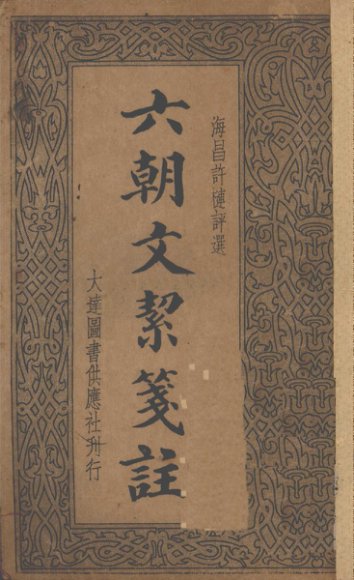 海昌許槤評選
六朝文絜箋註
大達圖書供應社刋行